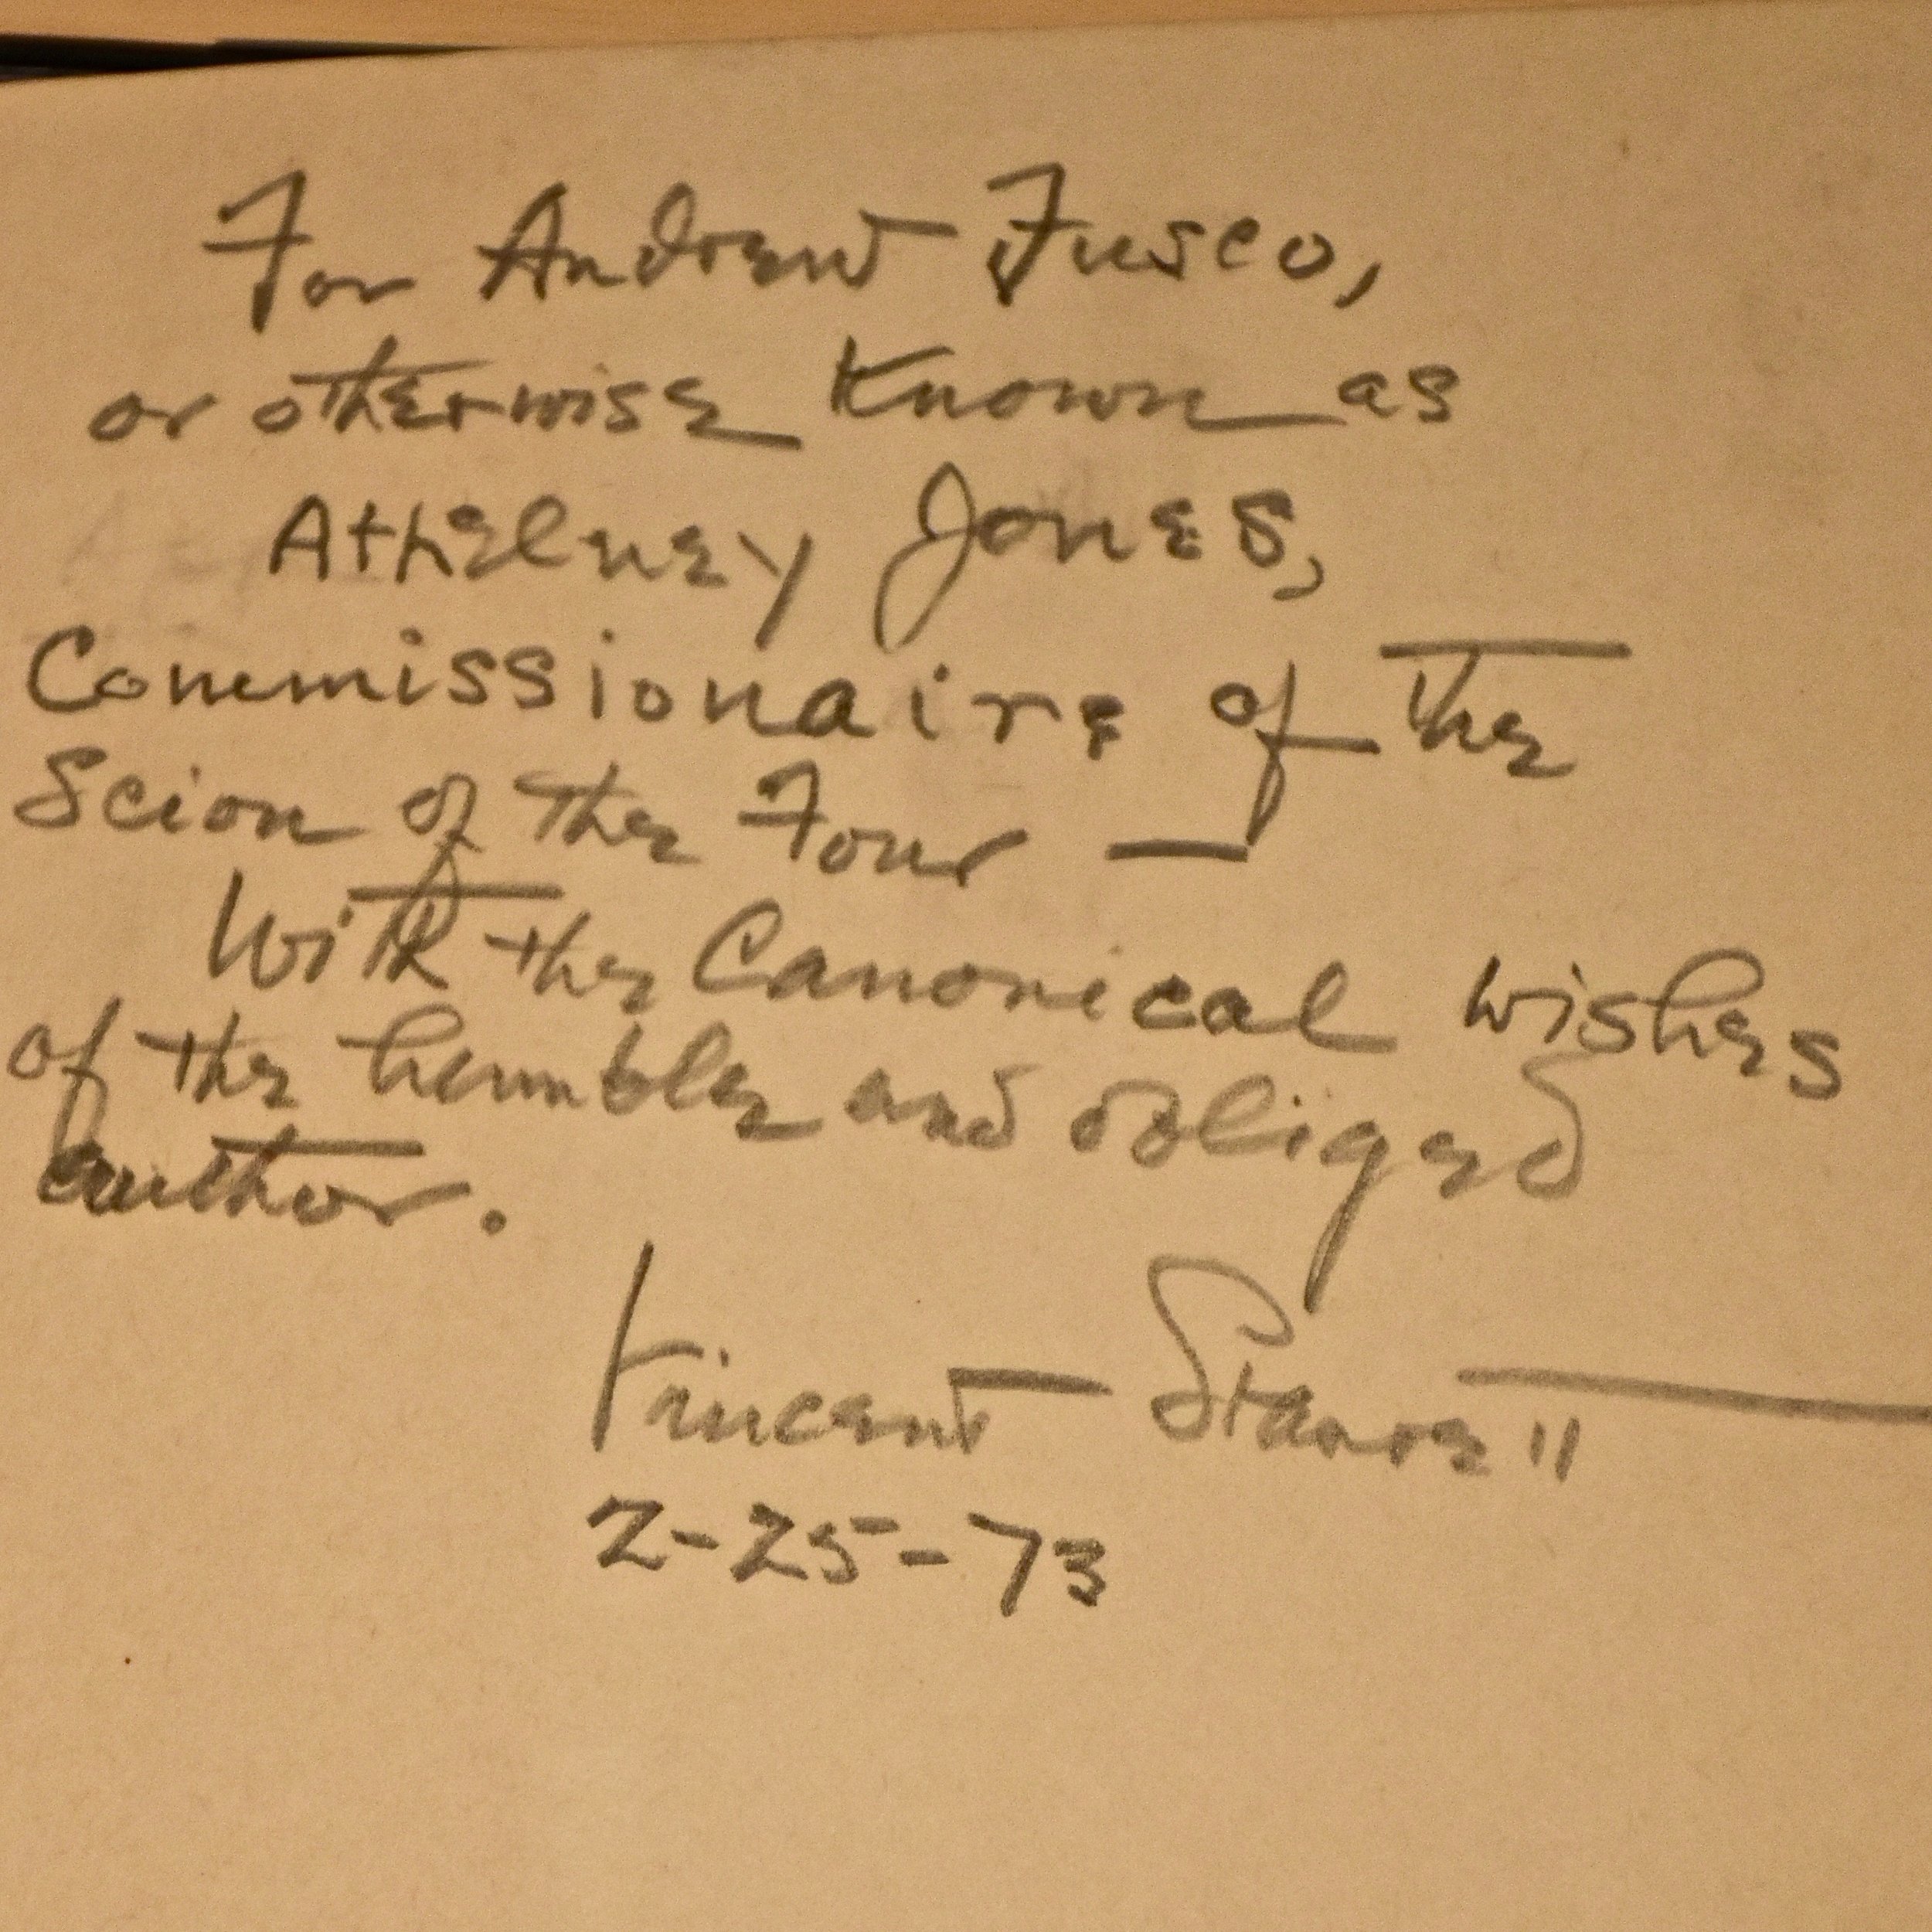 For Andrew Fusco,
or otherwise Known as
Athelney Jones,
Commissionaire of the
Scion of the Four —
With the Canonical wishes
of the humble and obliged
author.
Vincent Starrett
2-25-73